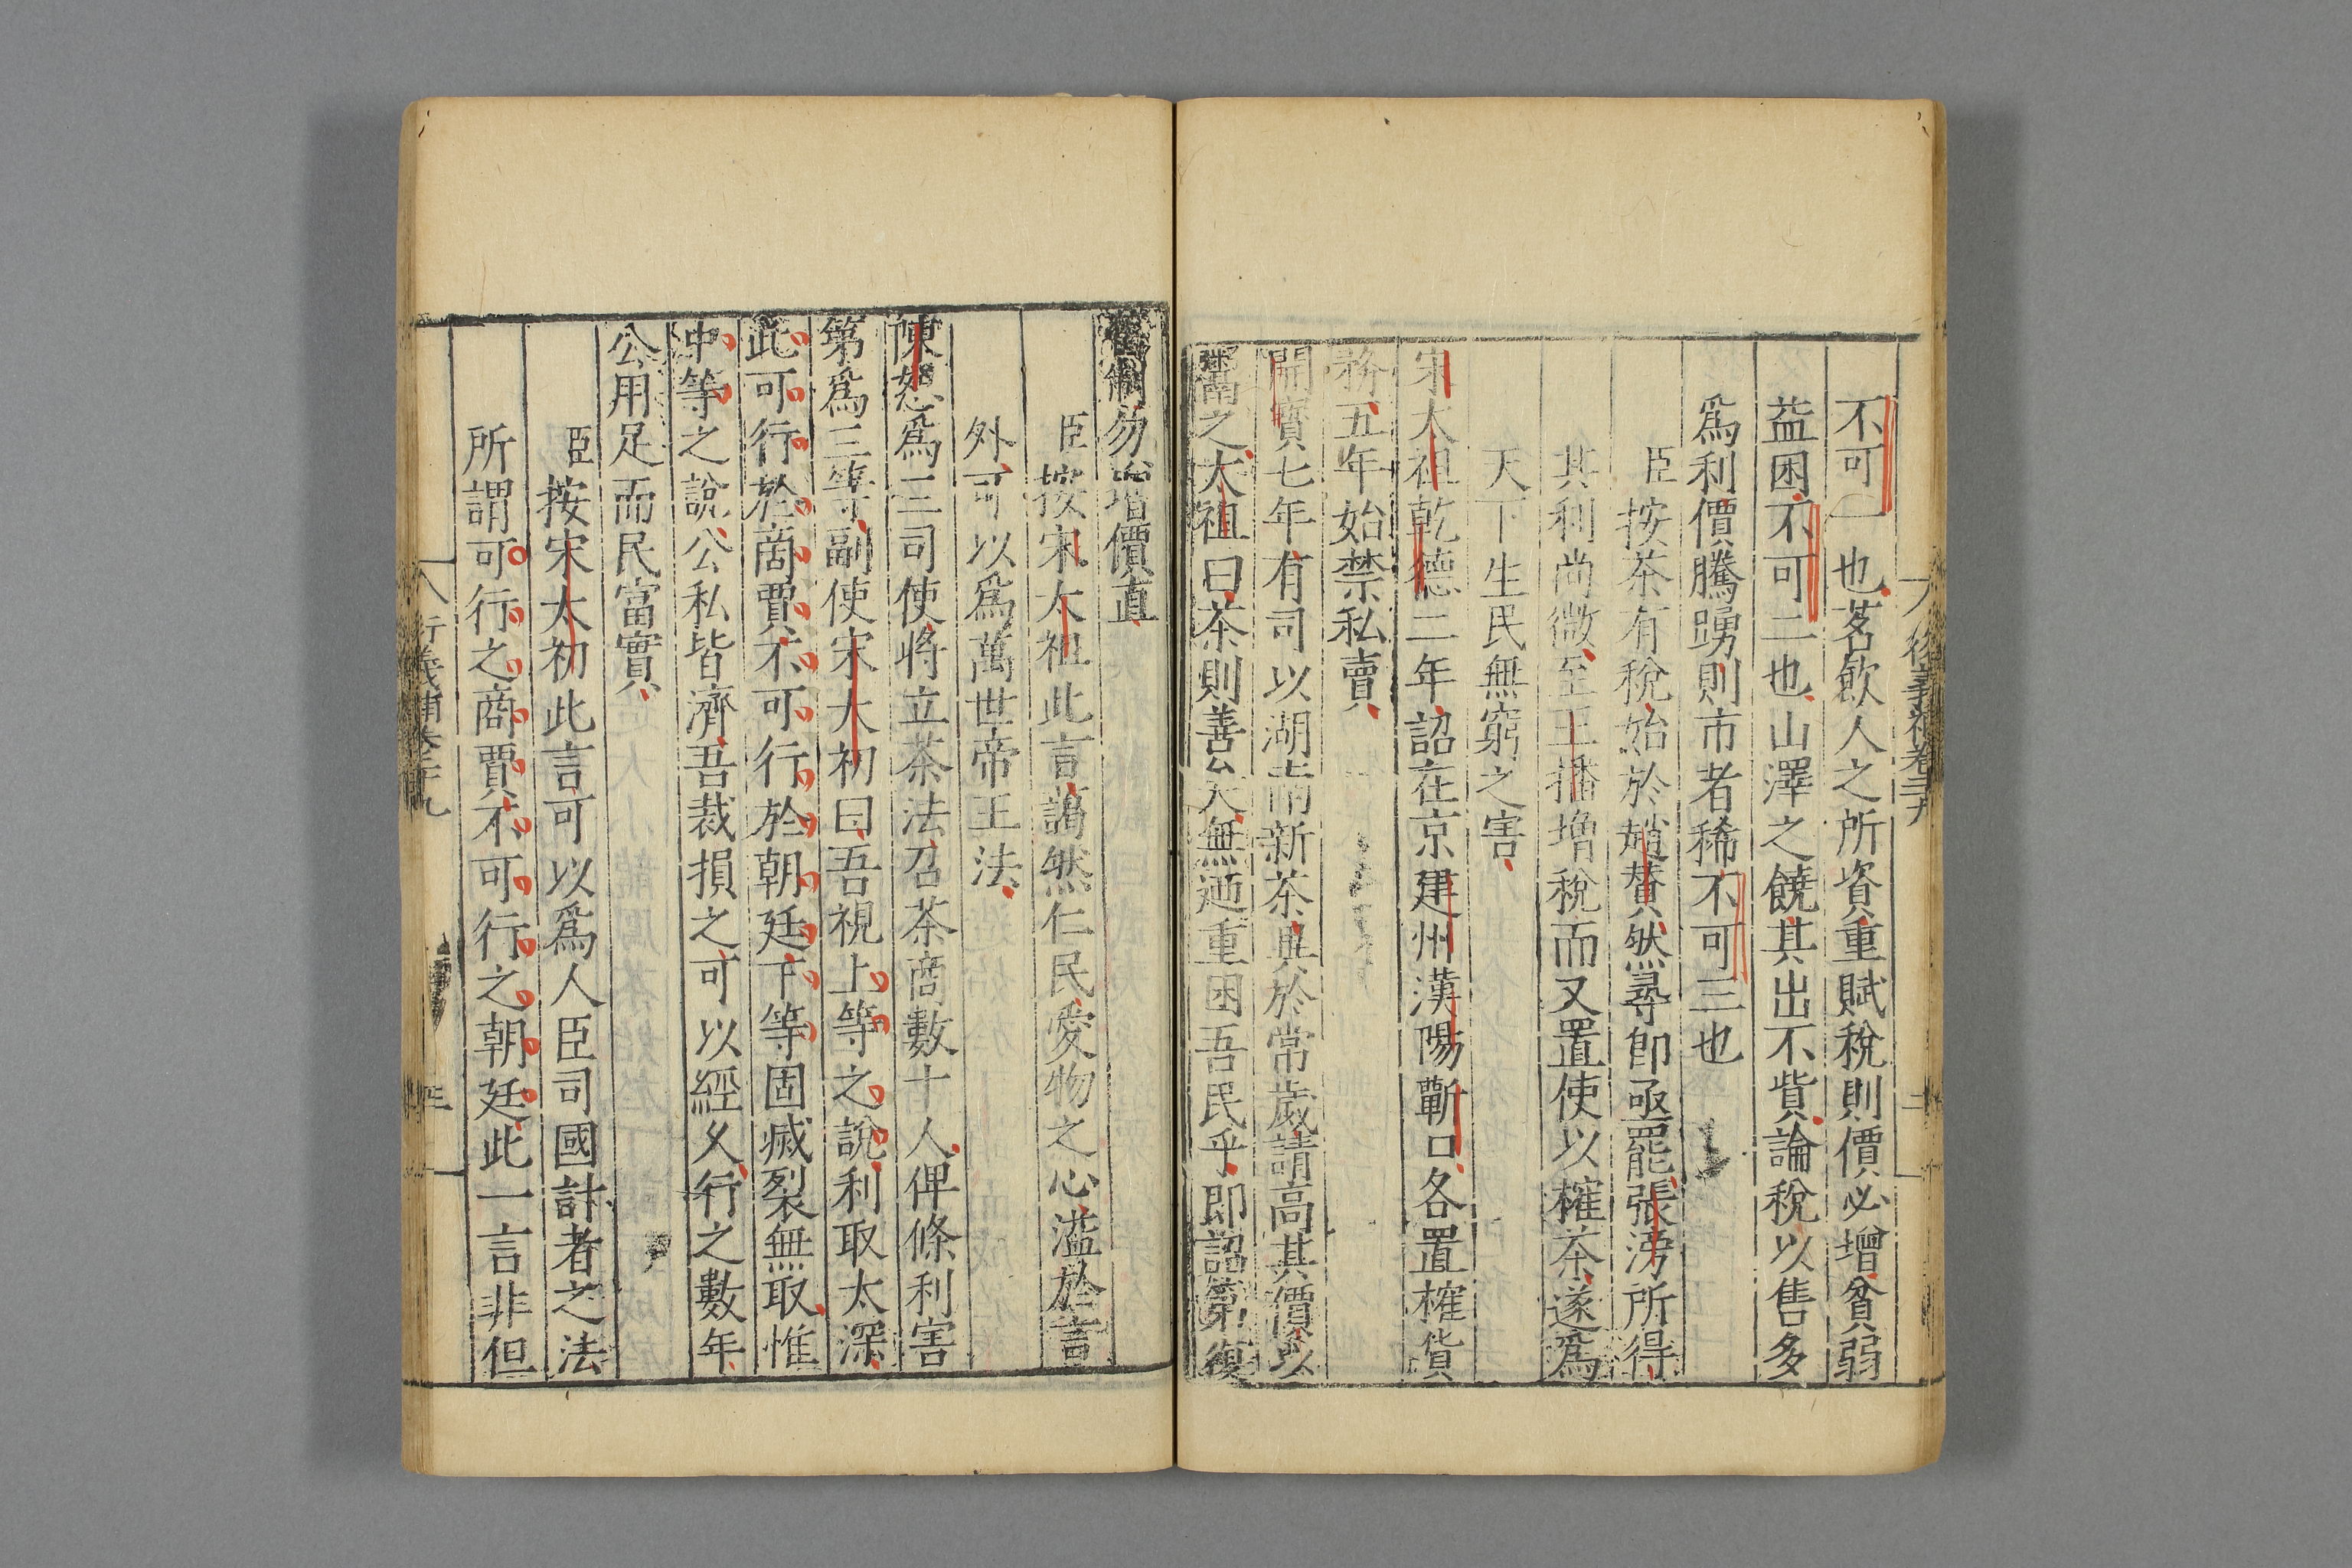 不可一也茗飲人之所資重賦稅則價必增貧弱
益困不可二也山澤之饒其出不貲論稅以售多
爲利價騰踴則市者稀不可三也
臣按茶有稅始於趙贊然尋卽亟罷張滂所得
其利尚微至王播增稅而又置使以榷茶遂爲
天下生民無窮之害
宋太祖乾德二年詔在京建州漢陽蘄口各置榷貨
務五年始禁私賣
開寶七年有司以湖南新茶異於常歲請高其價以
鬻之太祖曰茶則善矣無廼重困吾民乎即詔第復
舊制勿增價直
臣按宋太祖此言藹然仁民愛物之心溢於言
外可以爲萬世帝王法
陳恕爲三司使將立茶法召茶商數十人俾條利害
第爲三等副使宋太初曰吾視上等之說利取太深
此可行於商賈不可行於朝廷下等固滅裂無取惟
中等之說公私皆濟吾裁損之可以經久行之數年
公用足而民富實
臣按宋太初此言可以爲人臣司國計者之法
所謂可行之商賈不可行之朝廷此一言非但